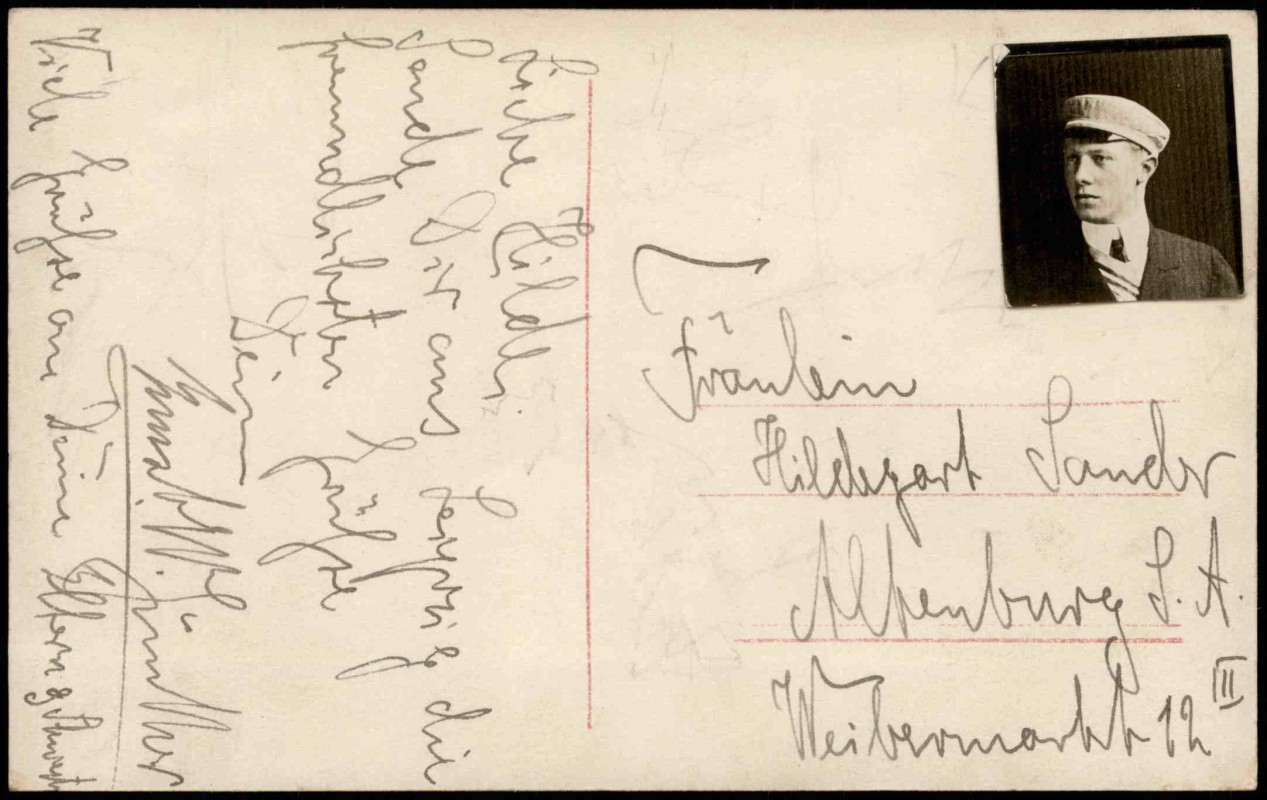 Liebe Hilde
Sende Dir aus Leipzig die
freundlichsten Grüße
Dein
Günther
Viele Grüße an Deine Eltern &
Fräulein
Hildegart Sander
Altenburg S. A.
Weibermarkt 12 II